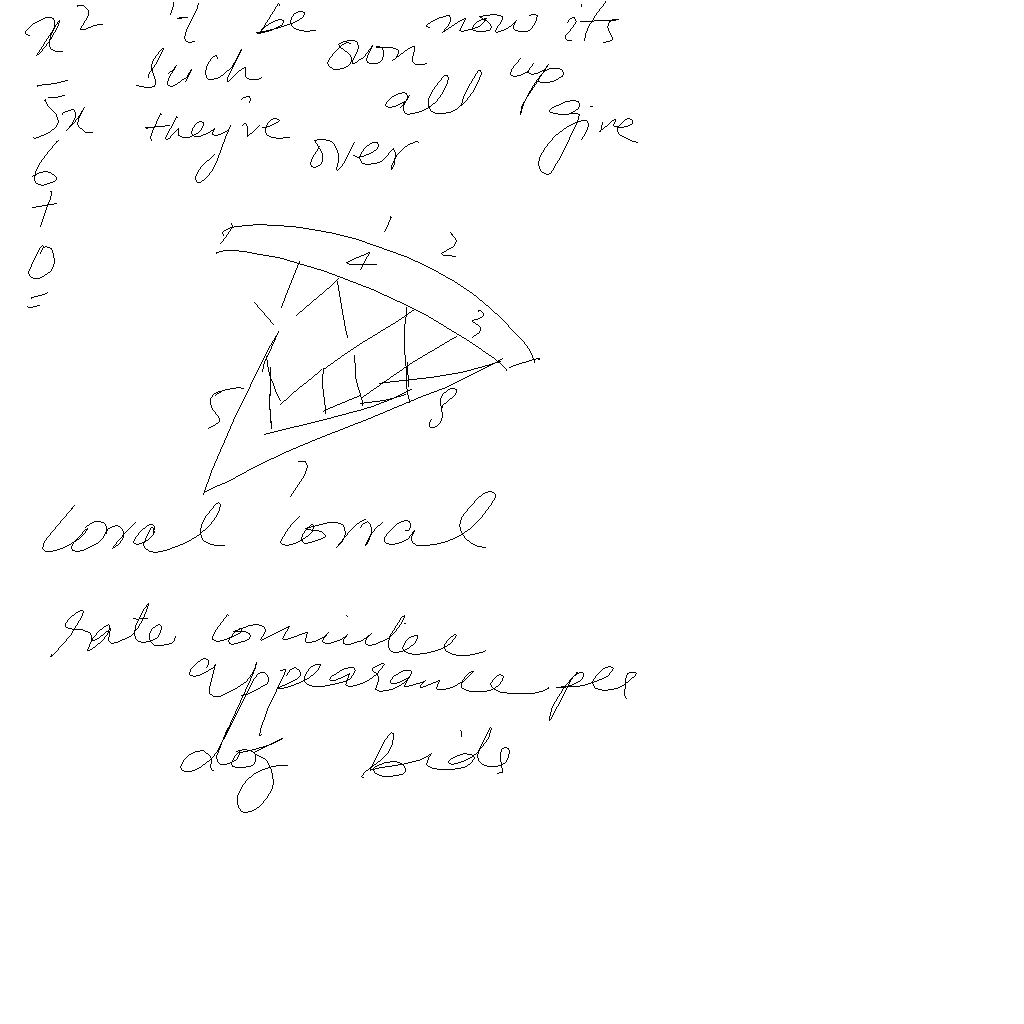 x² 4 be now its
= such own up
5x they've all give
6 over
+
0
=
1 2
4
3
5 8
7
coral corral
rate committee
appearance
dog bids